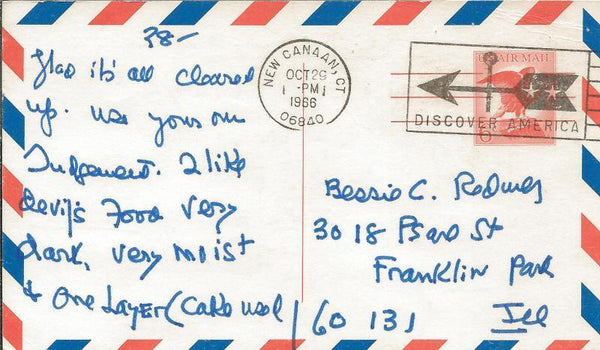 38-
Glad it's all cleared
up. Use your own
Judgement. I like
devil's Food very
dark, very moist
& one Layer (cake used
NEW CANAAN, CT
OCT 29
1 -PM
1966
06840
U.S. AIR MAIL
6c
DISCOVER AMERICA
Bessie C.
3018 St
Franklin Park
60131 Ill